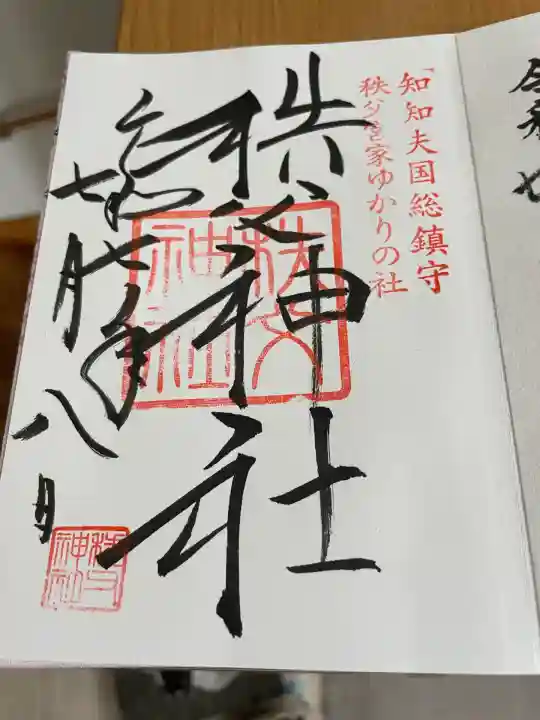 令和七
知知夫国総鎮守
秩父宮家ゆかりの社
秩父神社
秩父神社
令和七年
七月八日
秩父神社